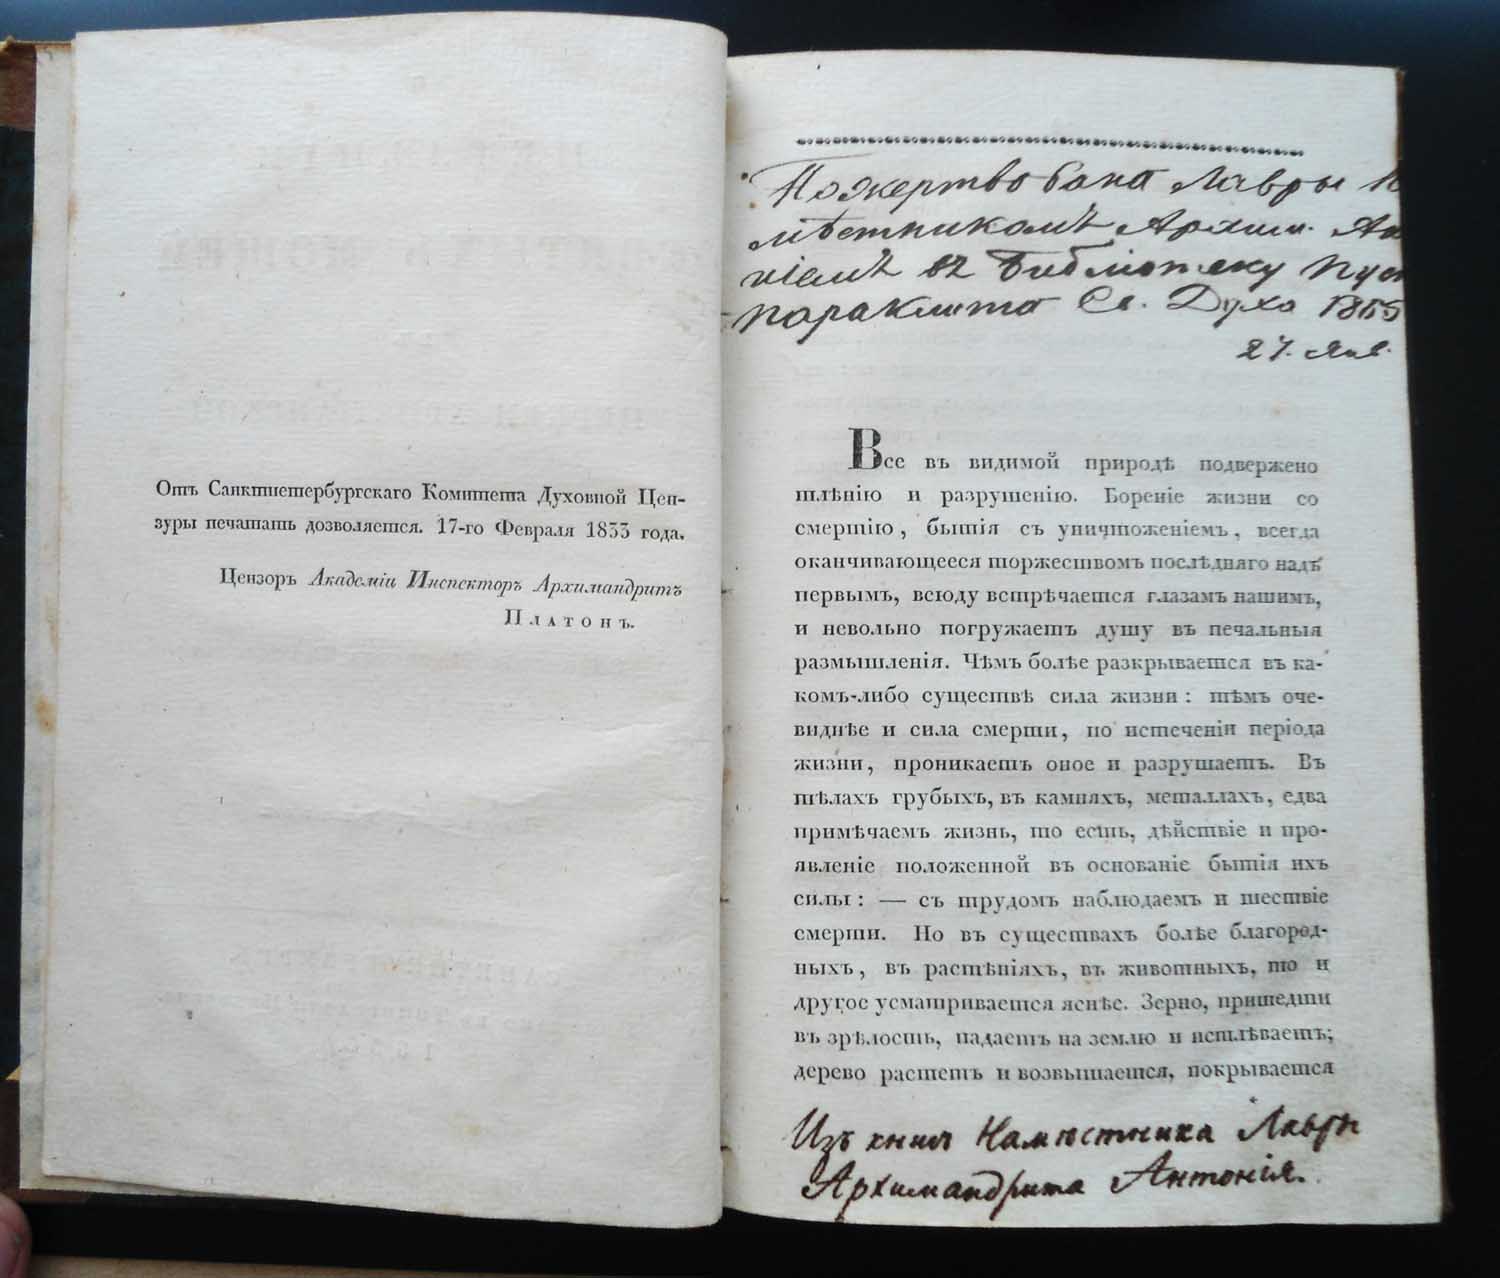 Отъ Санктпетербургскаго Комитета Духовной Цен-
зуры печатать дозволяется. 17-го Февраля 1833 года.
Цензоръ Академіи Инспекторъ Архимандритъ
Платонъ.
Пожертвована Лавры
мѣстникомъ Архим.
ніемъ въ Библіотеку Пуст
параклита Св. Духа 1865
27. Янв.
Все въ видимой природѣ подвержено
тлѣнію и разрушенію. Бореніе жизни со
смертію, бытія съ уничтоженіемъ, всегда
оканчивающееся торжествомъ послѣдняго надъ
первымъ, всюду встрѣчается глазамъ нашимъ,
и невольно погружаетъ душу въ печальныя
размышленія. Чѣмъ болѣе разкрывается въ ка-
комъ-либо существѣ сила жизни: тѣмъ оче-
виднѣе и сила смерти, по истеченіи періода
жизни, проникаетъ оное и разрушаетъ. Въ
тѣлахъ грубыхъ, въ камняхъ, металлахъ, едва
примѣчаемъ жизнь, то есть, дѣйствіе и про-
явленіе положенной въ основаніе бытія ихъ
силы: — съ трудомъ наблюдаемъ и шествіе
смерти. Но въ существахъ болѣе благород-
ныхъ, въ растѣніяхъ, въ животныхъ, то и
другое усматривается яснѣе. Зерно, пришедши
въ зрѣлость, падаетъ на землю и истлѣваетъ;
дерево растетъ и возвышается, покрывается
Изъ книг Намѣстника Лавры
Архимандрита Антонія.